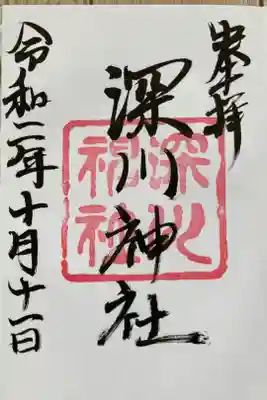 奉拝
深川神社
深川神社
令和二年十月十一日